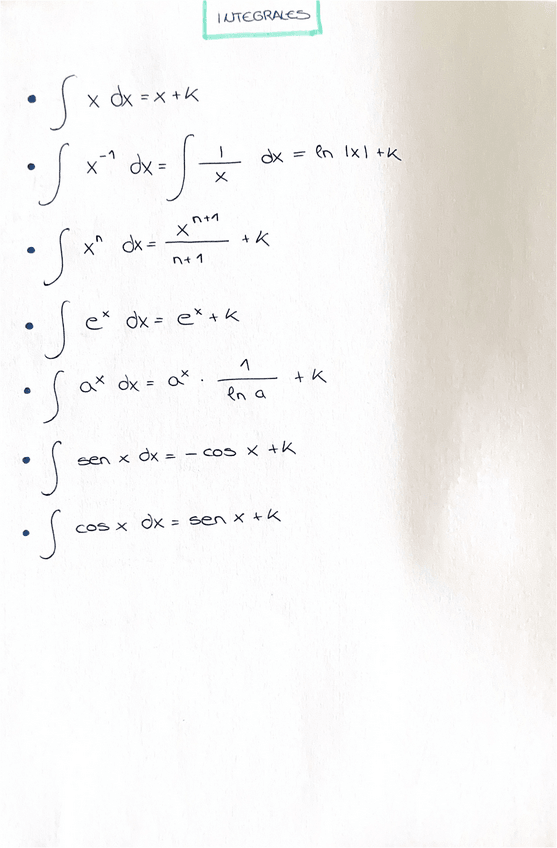 INTEGRALES
• ∫ x dx = x + K
• ∫ x⁻¹ dx = ∫ 1/x dx = ln |x| + K
• ∫ xⁿ dx = xⁿ⁺¹/n+1 + K
• ∫ eˣ dx = eˣ + K
• ∫ aˣ dx = aˣ · 1/ln a + K
• ∫ sen x dx = − cos x + K
• ∫ cos x dx = sen x + K